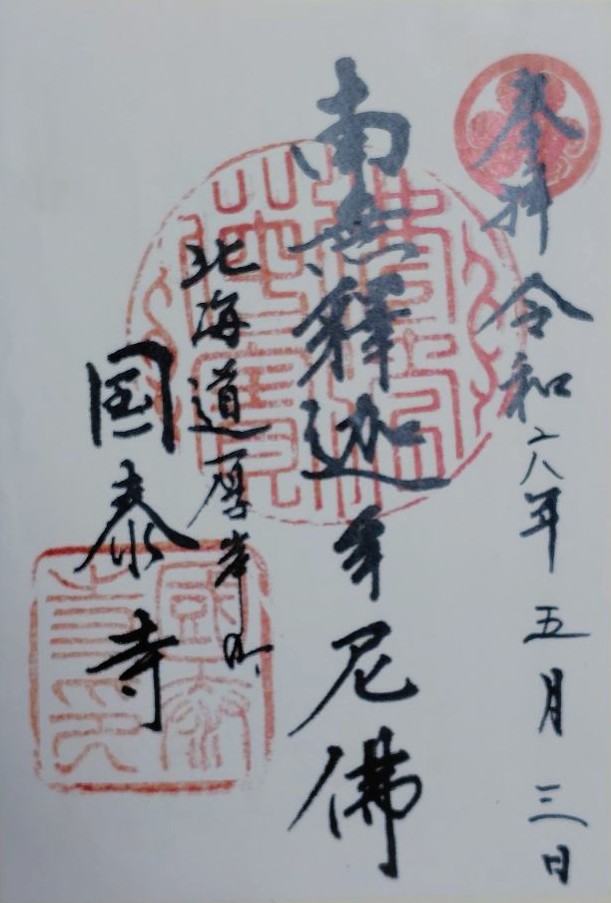 奉拝 令和六年五月三日
南無釋迦牟尼佛
北海道厚岸町
国泰寺
佛法僧寶
國泰寺印